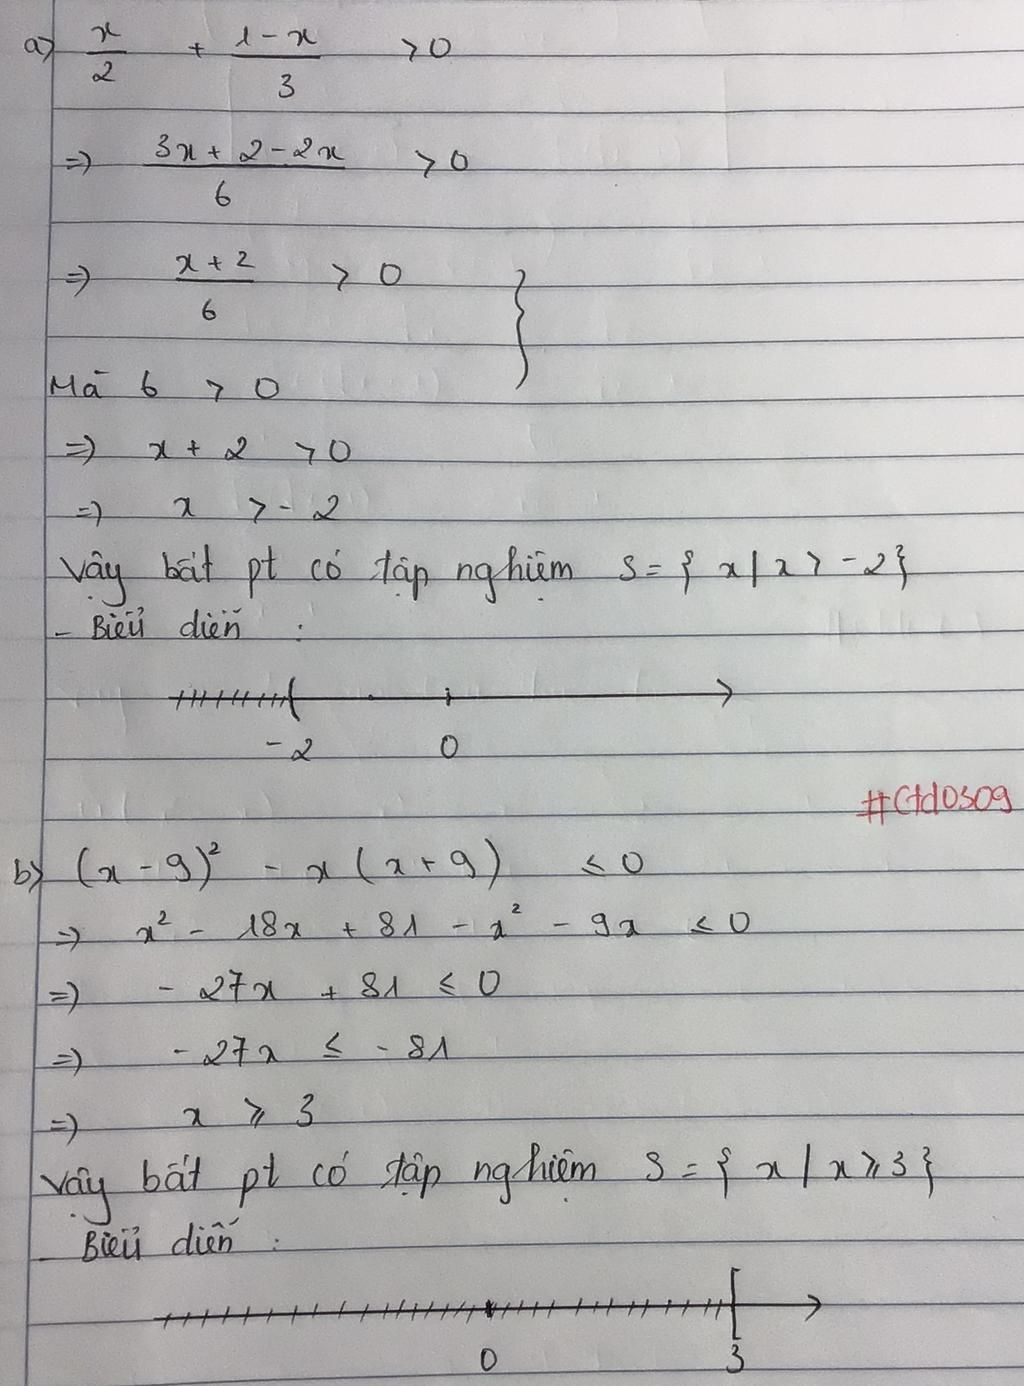 a) x/2 + (1 - x)/3 > 0
=> (3x + 2 - 2x)/6 > 0
=> (x + 2)/6 > 0 }
Mà 6 > 0
=> x + 2 > 0
=> x > - 2
Vậy bất pt có tập nghiệm S = { x | x > -2 }
- Biểu diễn :
-2 0
#Ctd0309
b) (x - 9)² - x ( x + 9 ) ≤ 0
=> x² - 18x + 81 - x² - 9x ≤ 0
=> - 27x + 81 ≤ 0
=> - 27x ≤ - 81
=> x ⩾ 3
Vậy bất pt có tập nghiệm S = { x | x ⩾ 3 }
- Biểu diễn :
0 3